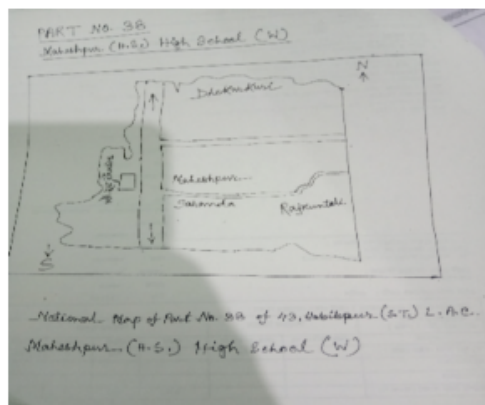 PART No. 38
Maheshpur (H.S.) High School (W)
N
Dhakarkuri
Maheshpur
Sahamuta
Rajkuntali
S
Notional Map of Part No. 38 of 43, Habibpur (S.T.) L.A.C.
Maheshpur (H.S.) High School (W)